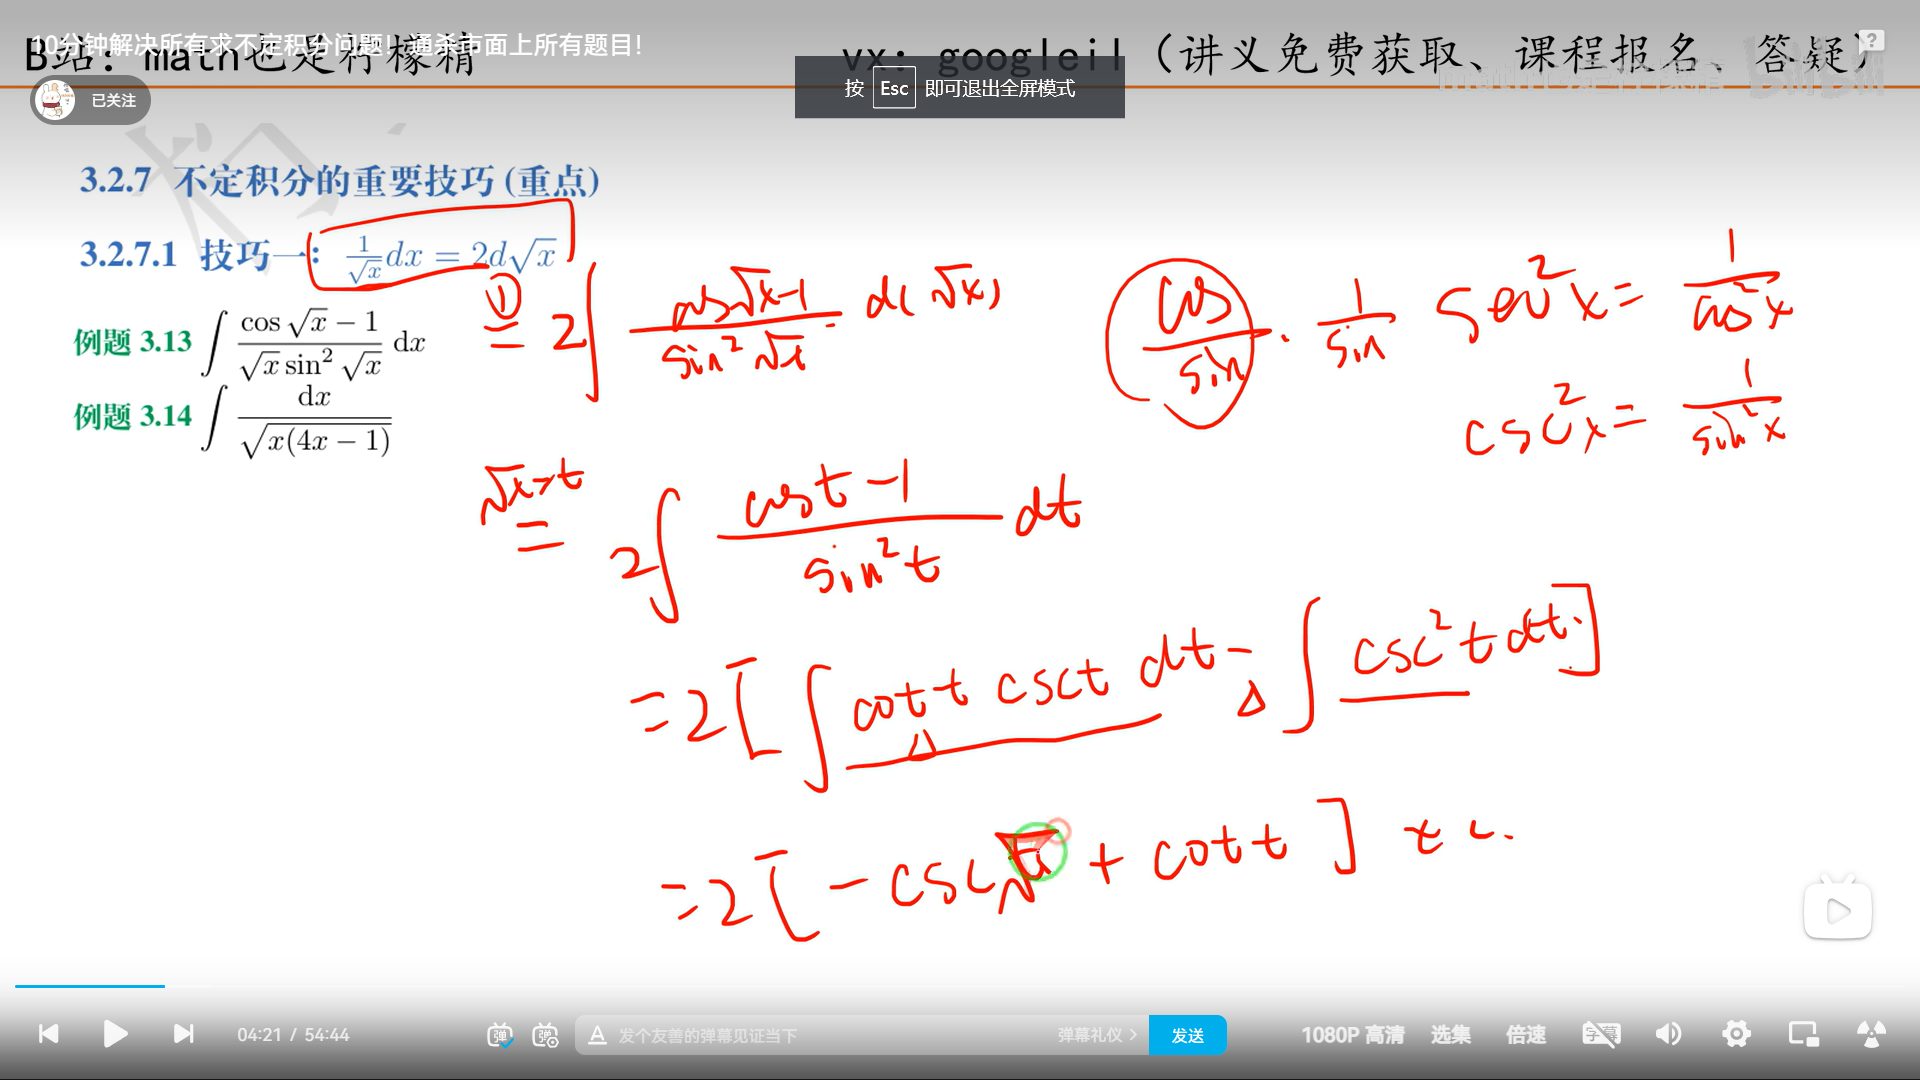 10分钟解决所有求不定积分问题!通杀市面上所有题目!
B站: math也是柠檬精
vx: googleil (讲义免费获取、课程报名、答疑)
按 Esc 即可退出全屏模式
已关注
3.2.7 不定积分的重要技巧 (重点)
3.2.7.1 技巧一: 1/√x dx = 2d√x
例题 3.13 ∫ (cos √x − 1)/(√x sin² √x) dx
① = 2∫ (cos√x−1)/(sin²√x) d(√x)
cos/sin · 1/sin
sec²x = 1/cos²x
csc²x = 1/sin²x
例题 3.14 ∫ dx/√(x(4x − 1))
√x=t = 2∫ (cost−1)/(sin²t) dt
=2[∫cott csct dt − ∫csc²t dt.]
=2[−csc√x + cott] + c.
04:21 / 54:44
弹
弹
A 发个友善的弹幕见证当下
弹幕礼仪 >
发送
1080P 高清
选集
倍速
字幕